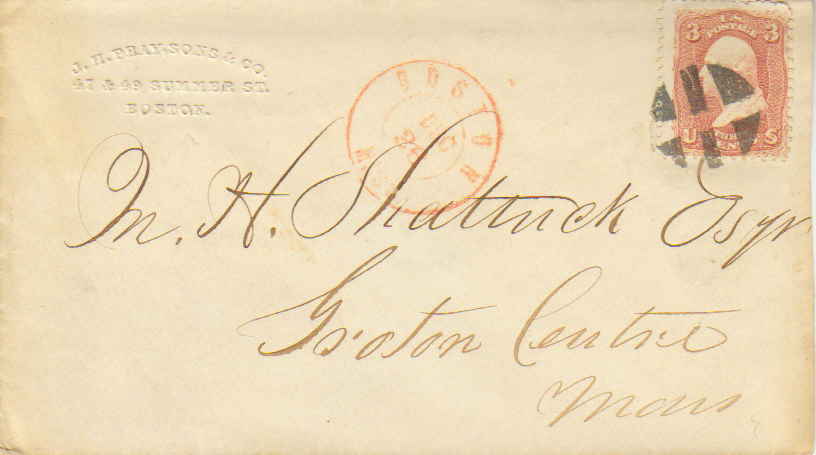 J. H. PRAY, SONS & CO.
47 & 49 SUMMER ST.
BOSTON.
BOSTON
DEC
26
MASS
3 U.S. POSTAGE 3
U CENTS S
M. H. Shattuck Esqr
Groton Centre
Mass